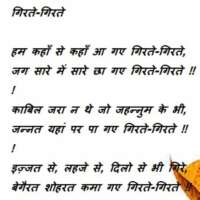 गिरते-गिरते
हम कहाँ से कहाँ आ गए गिरते-गिरते,
जग सारे में सारे छा गए गिरते-गिरते !!
!
काबिल जरा न थे जो जहन्नुम के भी,
जन्नत यहां पर पा गए गिरते-गिरते !!
!
इज़्जत से, लहजे से, दिलो से भी गिरे,
बेगैरत शोहरत कमा गए गिरते-गिरते !!